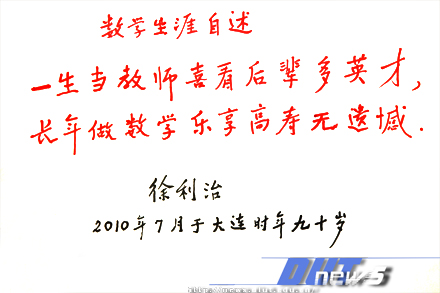 数学生涯自述
一生当教师喜看后辈多英才，
长年做数学乐享高寿无遗憾．
徐利治
2010年7月于大连时年九十岁
news